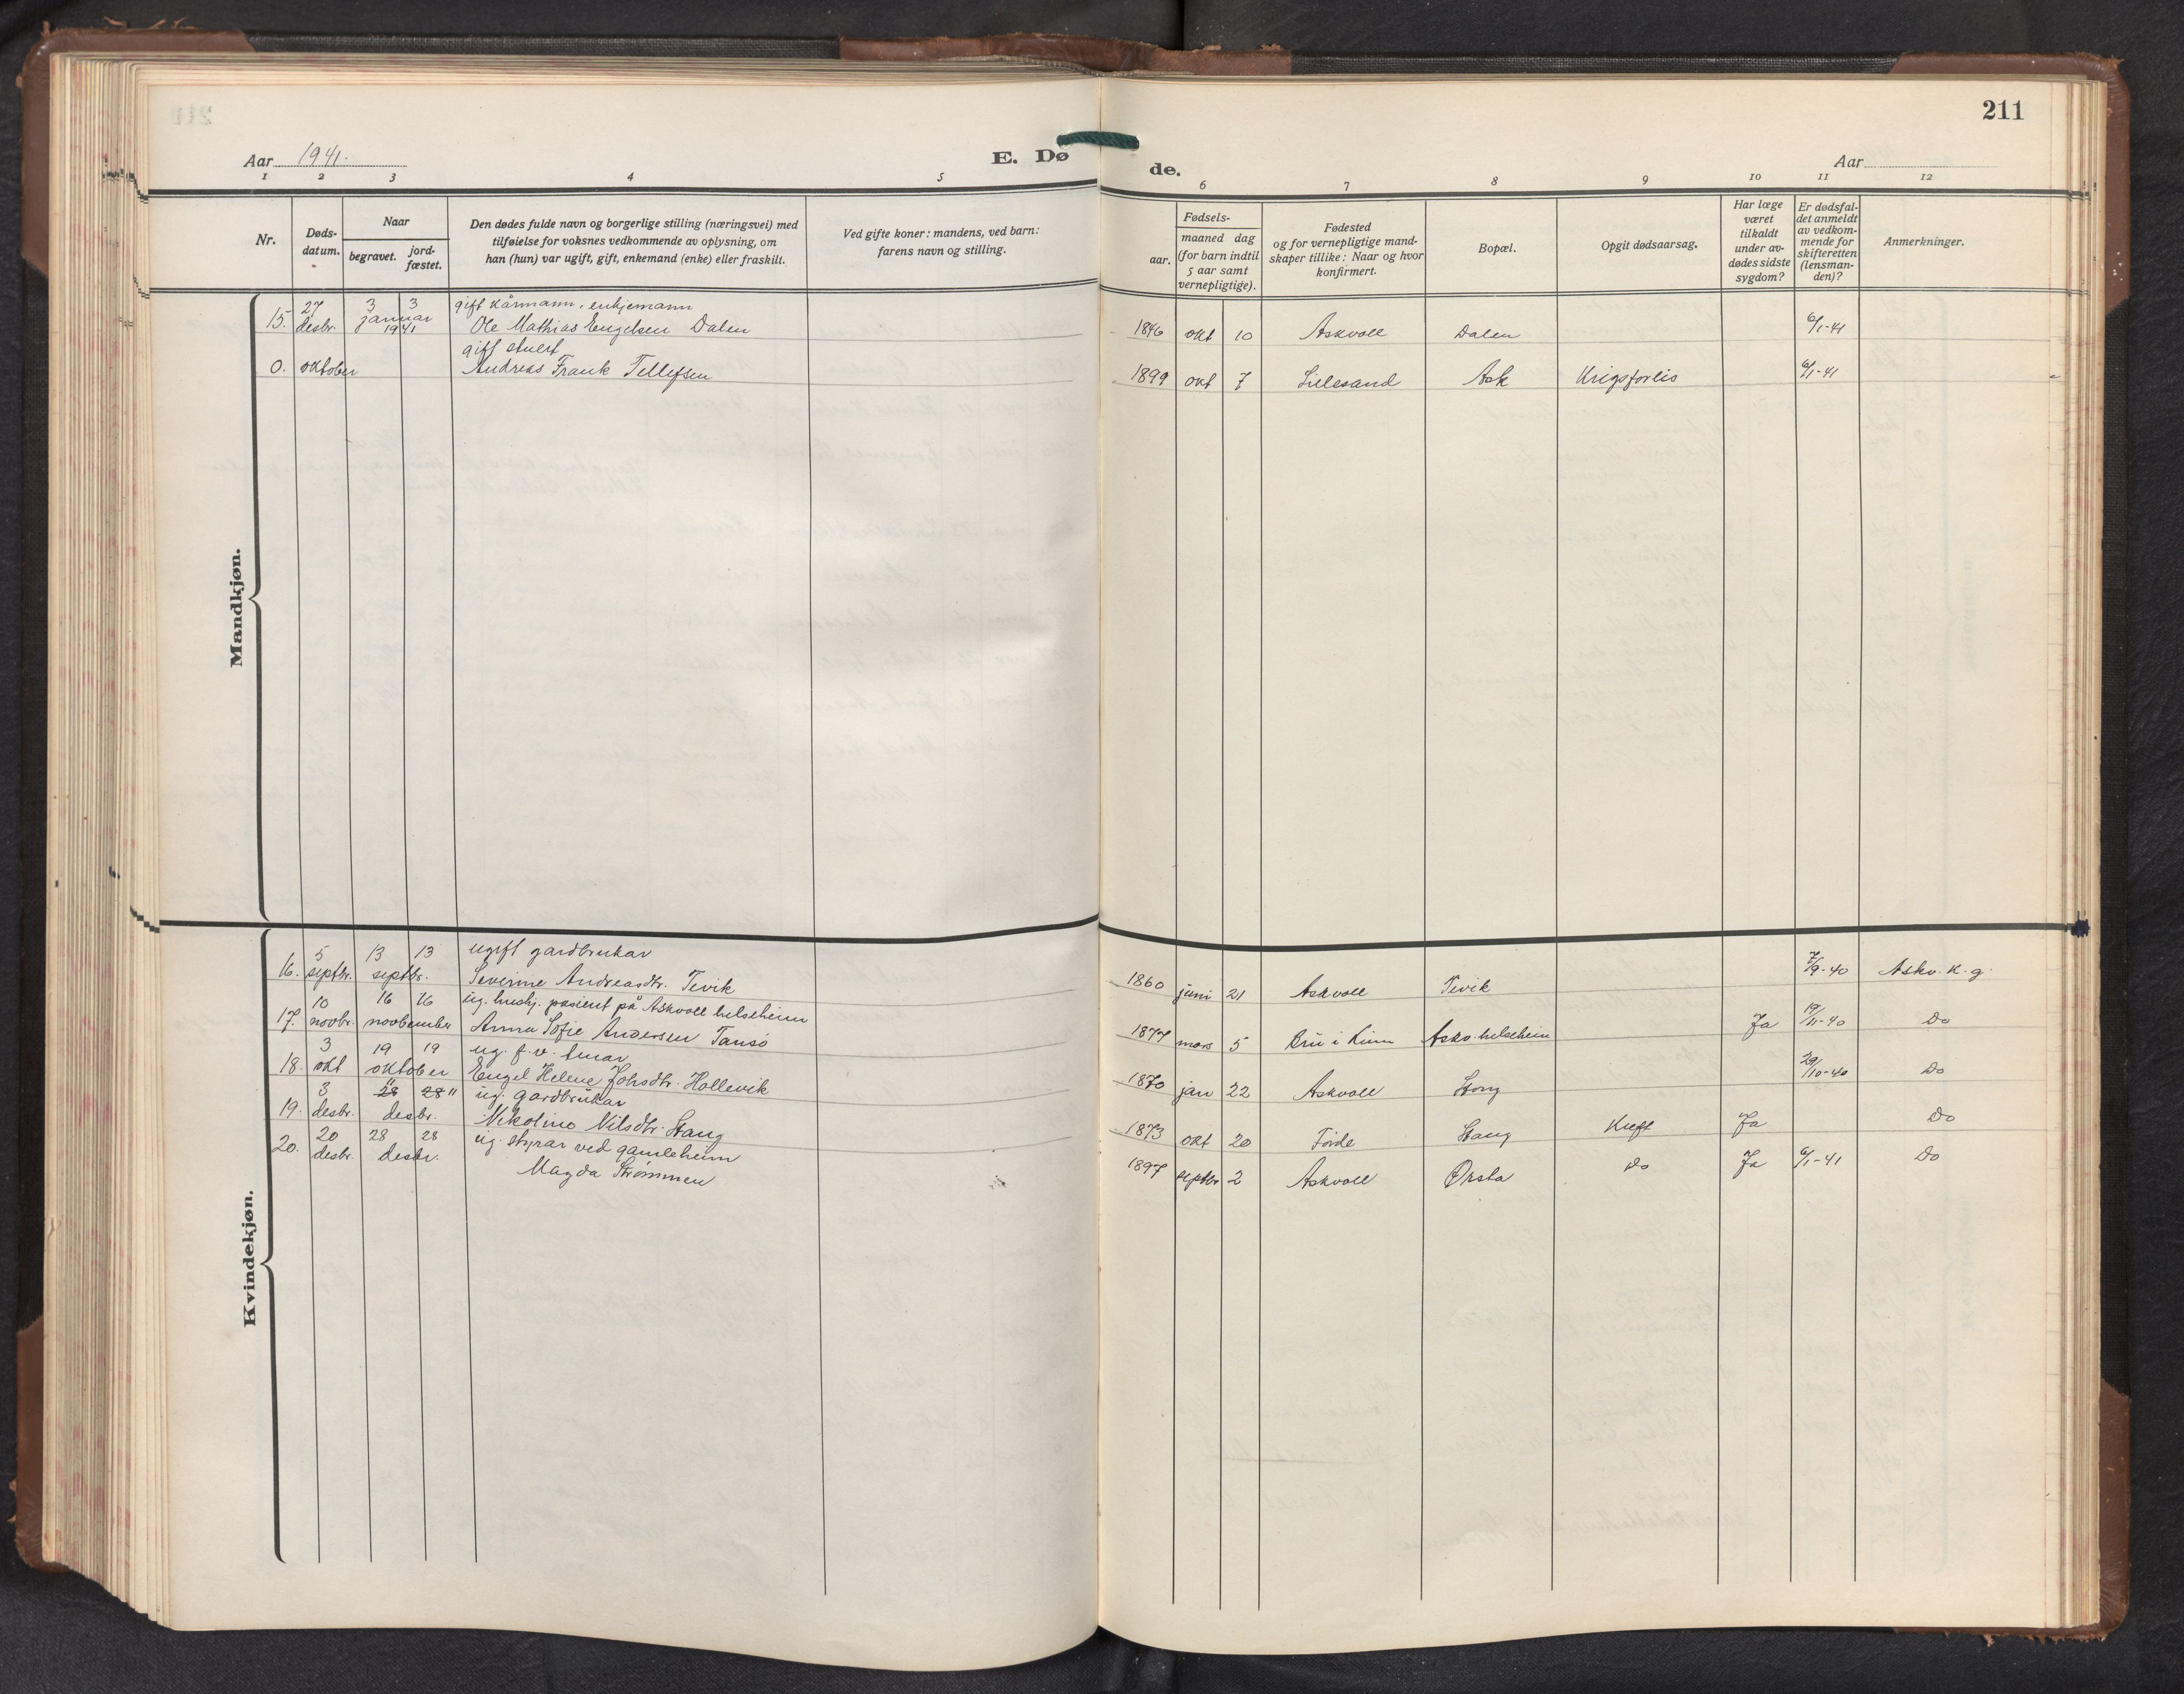 211
Aar 1941.
E. Dø
de.
Aar
1 2 3 4 5 6 7 8 9 10 11 12
Nr.
Døds-
datum.
Naar
begravet.
jord-
fæstet.
Den dødes fulde navn og borgerlige stilling (næringsvei) med
tilføielse for voksnes vedkommende av oplysning, om
han (hun) var ugift, gift, enkemand (enke) eller fraskilt.
Ved gifte koner: mandens, ved barn:
farens navn og stilling.
Fødsels-
aar.
maaned dag
(for barn indtil
5 aar samt
vernepligtige).
Fødested
og for vernepligtige mand-
skaper tillike: Naar og hvor
konfirmert.
Bopæl.
Opgit dødsaarsag.
Har læge
været
tilkaldt
under av-
dødes sidste
sygdom?
Er dødsfal-
det anmeldt
av vedkom-
mende for
skifteretten
(lensman-
den)?
Anmerkninger.
Mandkjøn.
27 3 3 gift kårmann, enkjemann
15. desbr. januar 1941 Ole Mathias Engelsen Dalen 1846 okt 10 Askvoll Dalen 6/1-41
gift stuert
0. oktober Andreas Frank Tellefsen 1899 okt 7 Lillesand Ask Krigsforlis 6/1-41
Kvindekjøn.
5 13 13 ugift gardbrukar
16. septbr. septbr. Severine Andreasdtr. Tevik 1860 juni 21 Askvoll Tevik 7/9-40 Askv. k. g.
10 16 16 ug. hushj. pasient på Askvoll helseheim
17. novbr. november Anna Sofie Andersen Tansø 1877 mars 5 Bru i Kinn Askv. helseheim Ja 19/11-40 Do
3 19 19 ug. f.v.
18. okt oktober Engel Helene Johsdtr. Hollevik 1870 jan 22 Askvoll Stong 29/10-40 Do
3 28 28 ug. gardbrukar
19. desbr. desbr. Nikoline Nilsdtr. Stang 1873 okt 20 Førde Stang Kreft Ja Do
20 28 28 ug. styrar ved gamleheim
20. desbr. desbr. Magda Strømmen 1897 septbr 2 Askvoll Ørsta Do Ja 6/1-41 Do